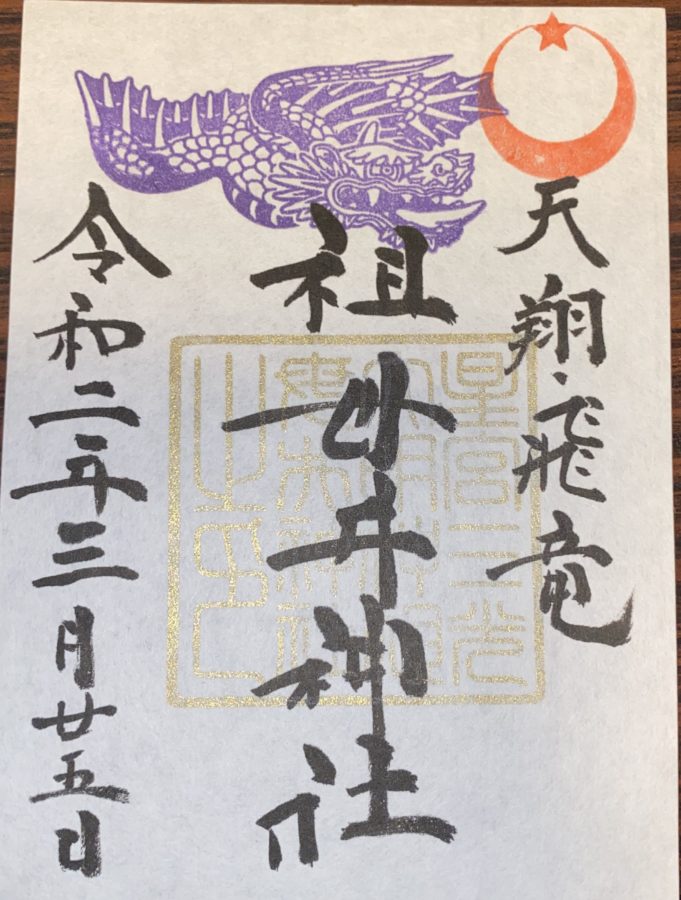 天翔飛竜
祖母井神社
令和二年三月廿五日